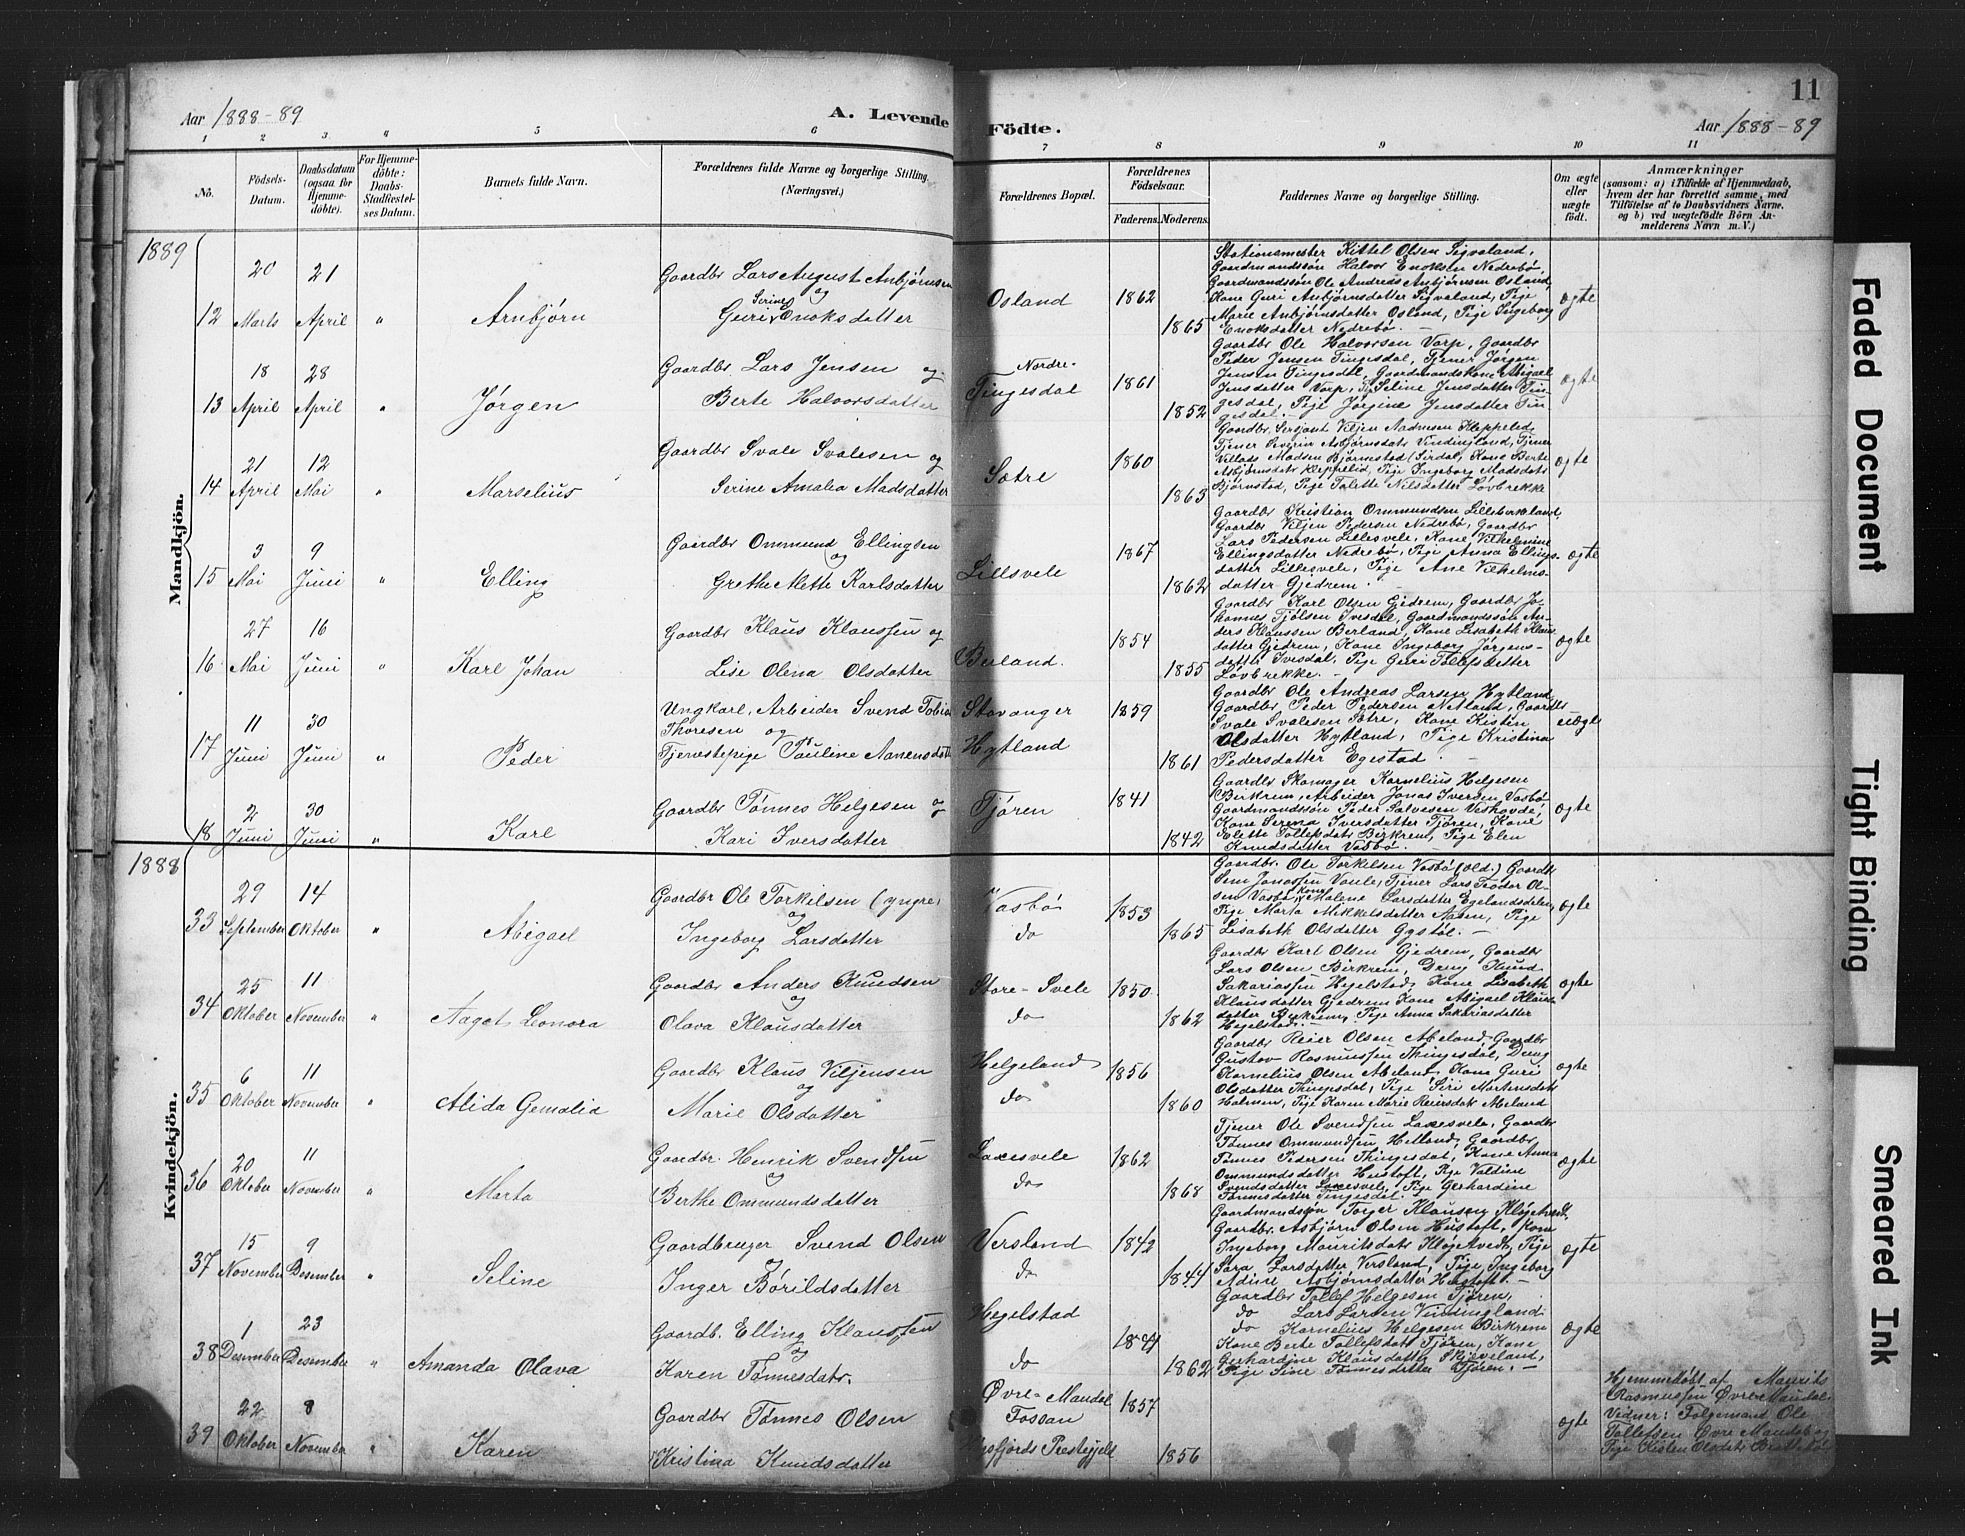 11
Aar 1888-89
A. Levende Födte.
Aar 1888-89
1 2 3 4 5 6 7 8 9 10 11
No.
Födsels-Datum.
Daabsdatum (ogsaa for Hjemmedöbte).
For Hjemmedöbte: Daabs-Stadfæstelses Datum.
Barnets fulde Navn.
Forældrenes fulde Navne og borgerlige Stilling. (Næringsvei.)
Forældrenes Bopæl.
Forældrenes Födselsaar.
Faderens.
Moderens.
Faddernes Navne og borgerlige Stilling.
Om ægte eller uægte födt.
Anmærkninger
(saasom: a) i Tilfælde af Hjemmedaab,
hvem der har forrettet samme, med
Tilföielse af to Daabsvidners Navne,
og b) ved uægtefödte Börn Anmelderens Navn m. V.)
Mandkjön.
1889
12
20 Marts
21 April
"
Arnbjörn
Gaardbr Lars August Anbjørnsen
og
Guri Serine Enoksdatter
Osland
1862
1865
Stationsmester Kittel Olsen Sigveland,
Gaardmandssøn Halvor Enoksen Nedrebø,
Gaardmandssøn Ole Andreas Anbjørnsen Osland,
Kone Guri Anbjørnsdatter Sigveland, Pige
Marie Anbjørnsdatter Osland, Pige Ingeborg
Enoksdatter Nedrebø.
ægte
13
18 April
28 April
"
Jørgen
Gaardbr Lars Jensen og
Berte Halvorsdatter
Nordre-
Tingesdal
1861
1852
Gaardbr Ole Halvorsen Varp, Gaardbr
Peder Jensen Tingesdal, Tjener Jørgen
Jensen Tingesdal, Gaardmandskone Abigael
Jensdatter Varp, Seline Jensdatter Tin-
gesdal, Pige Jørgine Jensdatter Tin-
gesdal.
ægte
14
21 April
12 Mai
"
Marselius
Gaardbr Svale Svalesen og
Serine Amalia Madsdatter
Sætre
1860
1863
Gaardbr, Sersjant Viljen Kleppelid,
Tjener Severin Asbjørnsdatr Vindingland, Tjener
Villads Madsen Bjørnestad (Sirdal), Kone Berte
Asbjørnsdatr Kleppelid, Pige Ingeborg Madsdatr
Bjørnstad, Pige Talette Nilsdatter Løvbrekke
ægte
15
3 Mai
9 Juni
"
Elling
Gaardbr Ommund Ellingsen
og
Grethe Mette Karlsdatter
Lillsvele
1867
1862
Gaardbr Kristian Ommundsen Lilleberkland,
Gaardbr Viljen Pedersen Nedrebø, Gaardbr
Lars Pedersen Lillesvele, Kone Vilhelmine
Ellingsdatter Nedrebø, Pige Anna Ellings-
datter Lillesvele, Pige Ane Vilhelms-
datter Gjedrem.
ægte
16
27 Mai
16 Juni
"
Karl Johan
Gaardbr Klaus Klaussen og
Lise Olena Olsdatter
Berland.
1854
1855
Gaardbr Karl Olsen Gjedrem, Gaardbr Jo-
hannes Tjølsen Ivesdal, Gaardmandssøn An-
ders Klaussen Berland, Kone Lisabeth Klaus-
datter Gjedrem, Kone Ingeborg Jørgens-
datter Ivesdal, Pige Guri Tollefsdatter
Løvbrekke.
ægte
17
11 Juni
30 Juni
"
Peder
Ungkarl, Arbeider Svend Tobias
Thoresen og
Tjenestepige Pauline Aanensdatt
Stavanger
Hytland
1859
1861
Gaardbr Ole Andreas Larsen Hytland,
Gaardbr Peder Pedersen Netland, Gaardbr
Svale Svalesen Sætre, Kone Kistin
Olsdatter Hytland, Pige Kristina
Pedersdatter Egestad.
uægte
18
2 Juni
30 Juni
"
Karl
Gaardbr Tønnes Helgesen og
Kari Iversdatter
Tjøren
1841
1842
Gaardbr Skomager Kornelius Helgesen
Birkrem, Arbeider Jonas Iversen Vasbø,
Gaardmandssøn Peder Salvesen Veshovde,
Kone Serena Iversdatter Tjøren, Kone
Elette Tollefsdatr Birkrem, Pige Elen
Knudsdatter Vasbø.
ægte
Kvindekjön.
1888
33
29 September
14 Oktober
"
Abigael
Gaardbr Ole Torkilsen (yngre)
og
Ingeborg Larsdatter
Vasbø
do
1853
1865
Gaardbr. Ole Torkilsen Vasbø (old.) Gaardb
Sem Jonassen Vaule, Tjener Lars Teodor Ol-
sen Vasbø, Kone Malene Larsdatter Egelandsdalen,
Pige Marta Mikkelsdatter Aasen, Pige
Lisabeth Olsdatter Gystøl.
ægte
34
25 Oktober
11 November
"
Aagot Leonora
Gaardbr Anders Knudsen
og
Olava Klausdatter
Store-Svele
do
1850
1862
Gaardbr Karl Olsen Gjedrem, Gaardbr
Lars Olsen Birkrem, Dreng Knud
Sakariassen Hegelstad, Kone Lisabeth
Klausdatter Gjedrem, Kone Abigael Klaus-
datter Birkrem, Pige Anna Sakariasdatter
Hegelstad.
ægte
35
6 Oktober
11 November
"
Alida Gemalia
Gaardbr Klaus Viljensen
og
Marie Olsdatter
Helgeland
do
1856
1860
Gaardbr Reier Olsen Abeland, Gaardbr
Gustav Rasmussen Thingesdal, Dreng
Kornelius Olsen Abeland, Kone Guri
Olsdatter Thingesdal, Pige Siri Martensdatr
Holmen, Pige Karen Marie Reiersdatr Abeland
ægte
36
20 Oktober
11 November
"
Marta
Gaardbr. Henrik Svendsen
og
Berthe Ommundsdatter
Laxesvele
do
1862
1868
Tjener Ole Svendsen Laxesvele, Gaardbr
Tønnes Ommundsen Helland, Gaardbr
Tønnes Pedersen Thingesdal, Kone Anna
Ommundsdatter Heistoft, Pige Valdine
Svendsdatter Laxesvele, Pige Gerhardine
Tønnesdatter Tingesdal.
ægte
37
15 November
9 Desember
"
Seline
Gaardbruger Svend Olsen
og
Inger Børildsdatter
Versland
do
1842
1844
Gaardmandssøn Torger Klausen Kløgetvedt,
Gaardbr. Asbjørn Olsen Heistoft, Kone
Ingeborg Mauritsdatr Kløgetvedt, Pige
Sara Larsdatter Versland, Pige Ingeborg
Adine Asbjørnsdatter Heistoft.
ægte
38
1 Desember
23 Desember
"
Amanda Olava
Gaardb. Elling Klaussen
og
Karen Tønnesdatr.
Hegelstad
do
1841
1862
Gaardbr Tollef Helgesen Tjøren,
do Lars Larsen Vindingland
do Kornelius Helgesen Birkrem
Kone Berte Tollefsdatr Tjøren, Kone
Gerhardine Klausdatter Skjeveland,
Pige Sine Tønnesdatter Tjøren.
ægte
39
22 Oktober
8 November
"
Karen
Gaardbr Tønnes Olsen
Kristina Knudsdatter
Øvre-Maudal
Fossan
Høgsfjords Prestegjeld
1857
1856
ægte
Hjemmedøbt af Maurits
Rasmussen Øvre Maudal.
Vidner: Folgemand Ole
Tollefsen Øvre Maudal og
Pige Kisten Olsdatr
Faded Document
Tight Binding
Smeared Ink